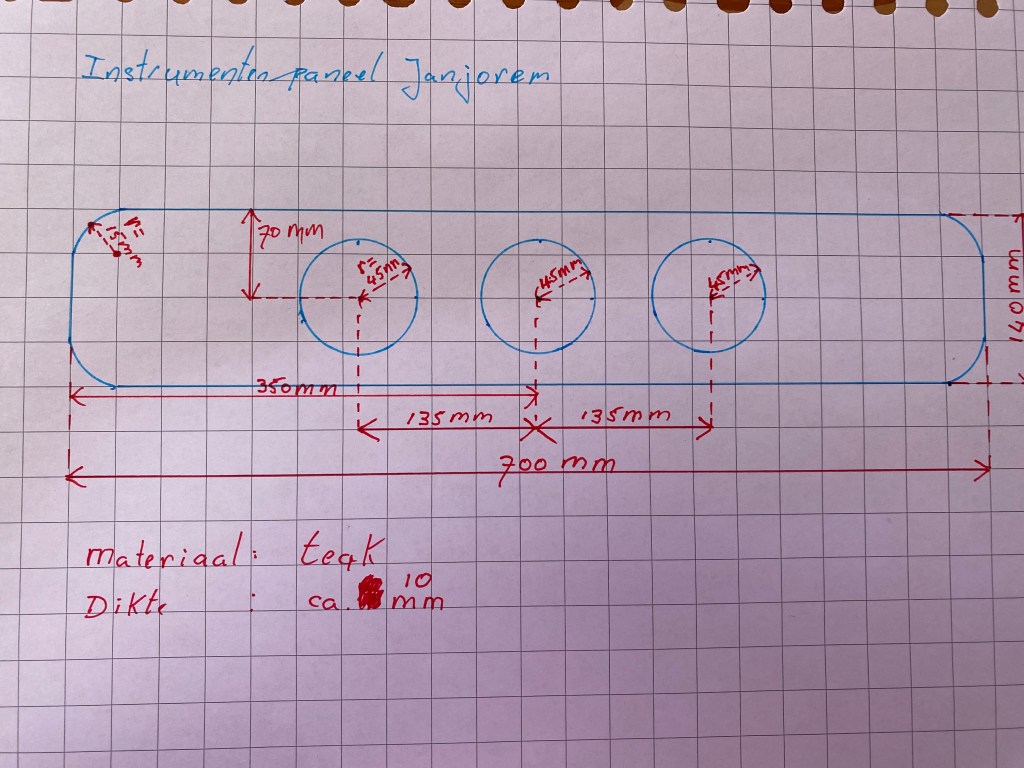 Instrumentenpaneel Janjorem
70 mm
r=
15mm
r=
45mm
45mm
45mm
140mm
350mm
135mm
135mm
700 mm
materiaal: teak
10
Dikte : ca. mm